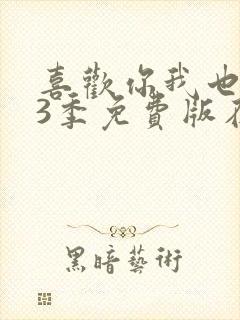 喜歡你我也
3季免費版在
黑暗藝術